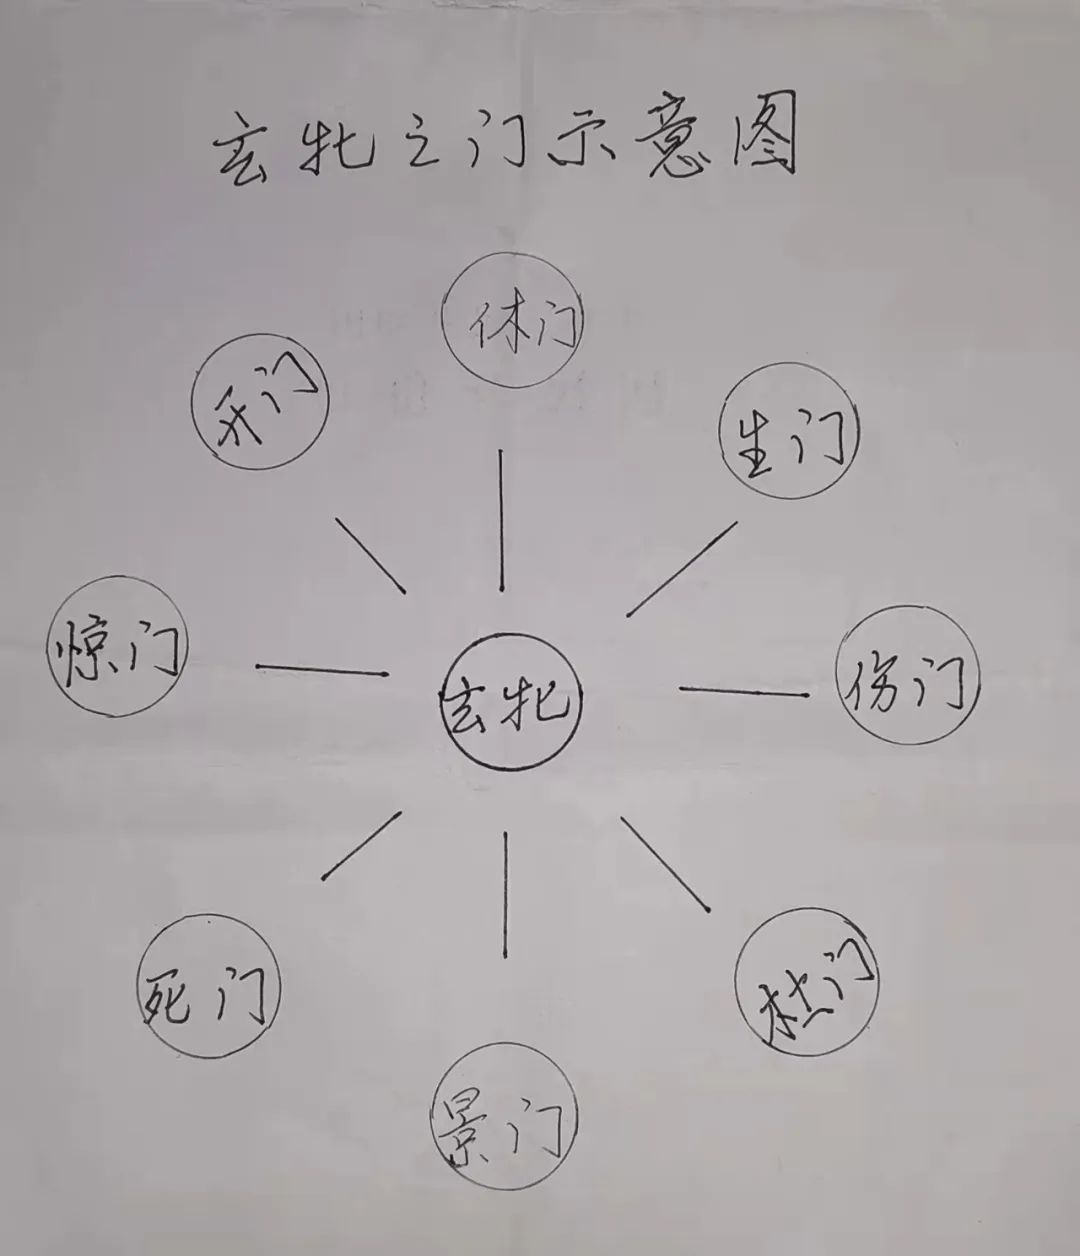 玄牝之门示意图
休门
开门
生门
惊门
玄牝
伤门
死门
杜门
景门